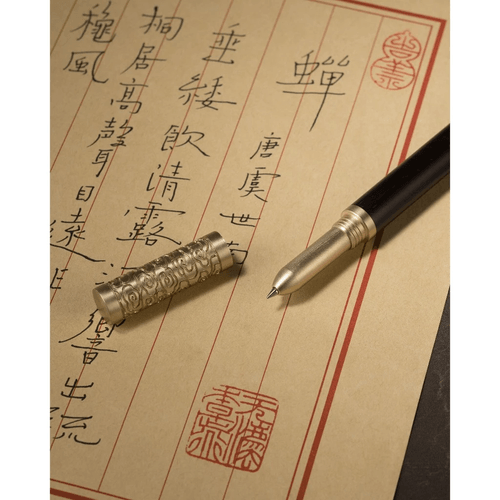 蟬
唐虞世南
垂緌飲清露流響出疏
桐居高聲自遠非
穐風